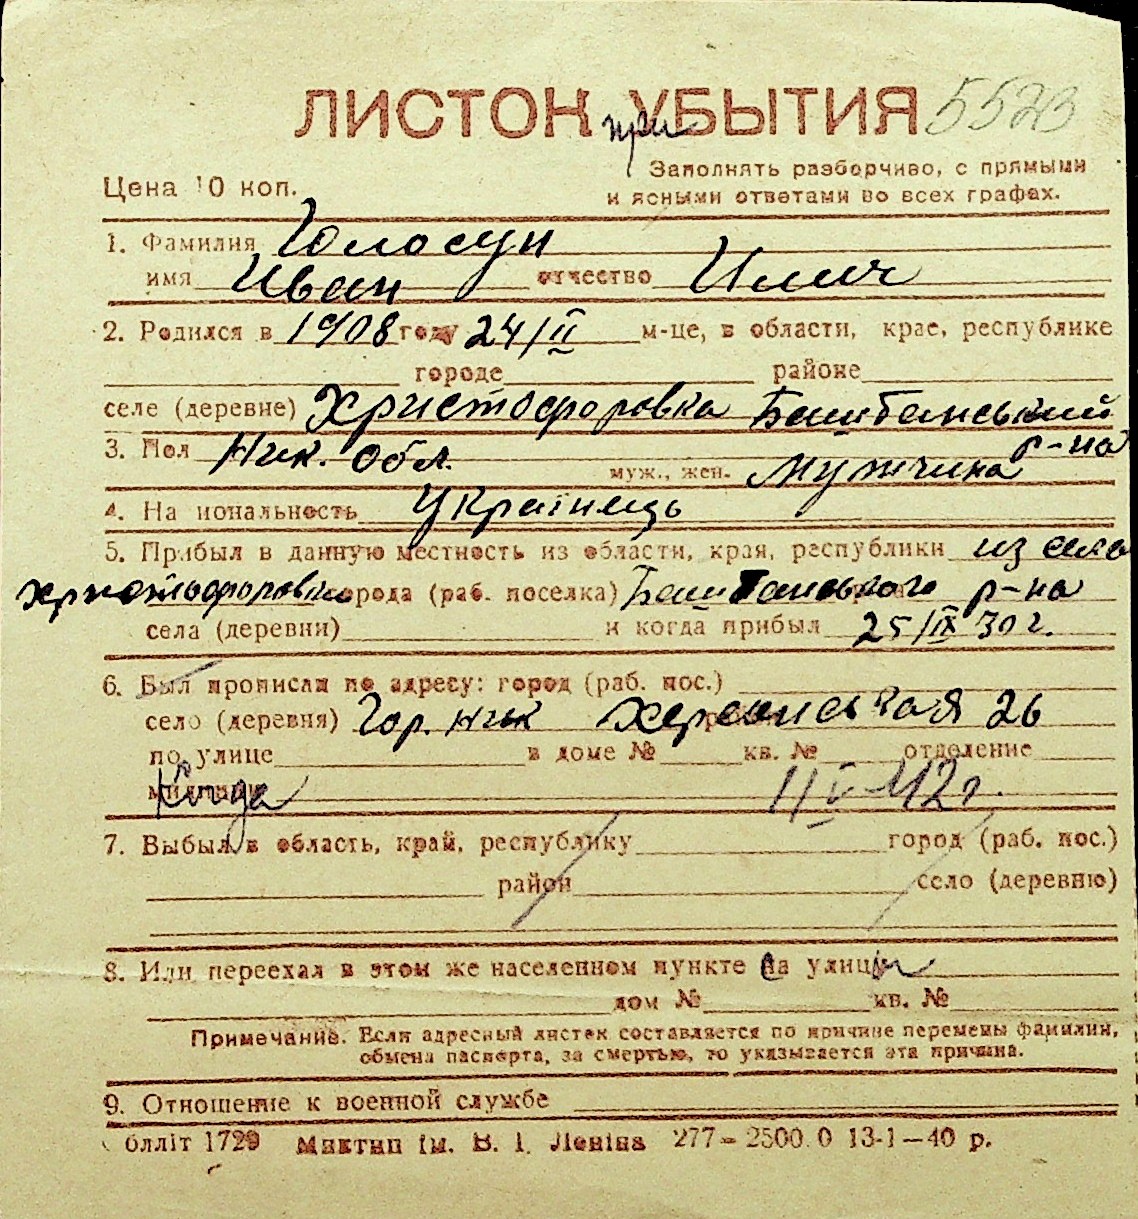 ЛИСТОК при УБЫТИЯ 5523
Цена 10 коп.
Заполнять разборчиво, с прямыми
и ясными ответами во всех графах.
1. Фамилия Голосун
имя Иван отчество Илич
2. Родился в 1908 году 24/II м-це, в области, крае, республике
городе районе
селе (деревне) Христофоровка Баштанський
р-на
3. Пол Ник. обл. муж., жен. Мужчина
4. На иональность Українець
5. Прибыл в данную местность из области, края, республики из села
Христофоровки города (раб. поселка) Баштанського р-на
села (деревни) и когда прибыл 25/IX 30 г.
6. Был прописан по адресу: город (раб. пос.)
село (деревня) Гор. Ник Херсонськая 26
по улице в доме № кв. № отделение
милиции Когда 11 V-42 г.
7. Выбыл в область, край, республику город (раб. пос.)
район село (деревню)
8. Или переехал в этом же населенном пункте с улицы
дом № кв. №
Примечание. Если адресный листок составляется по причине перемены фамилии,
обмена паспорта, за смертью, то указывается эта причина.
9. Отношение к военной службе
блліт 1729 Миктип ім. В. І. Леніна 277—2500.0 13-1—40 р.